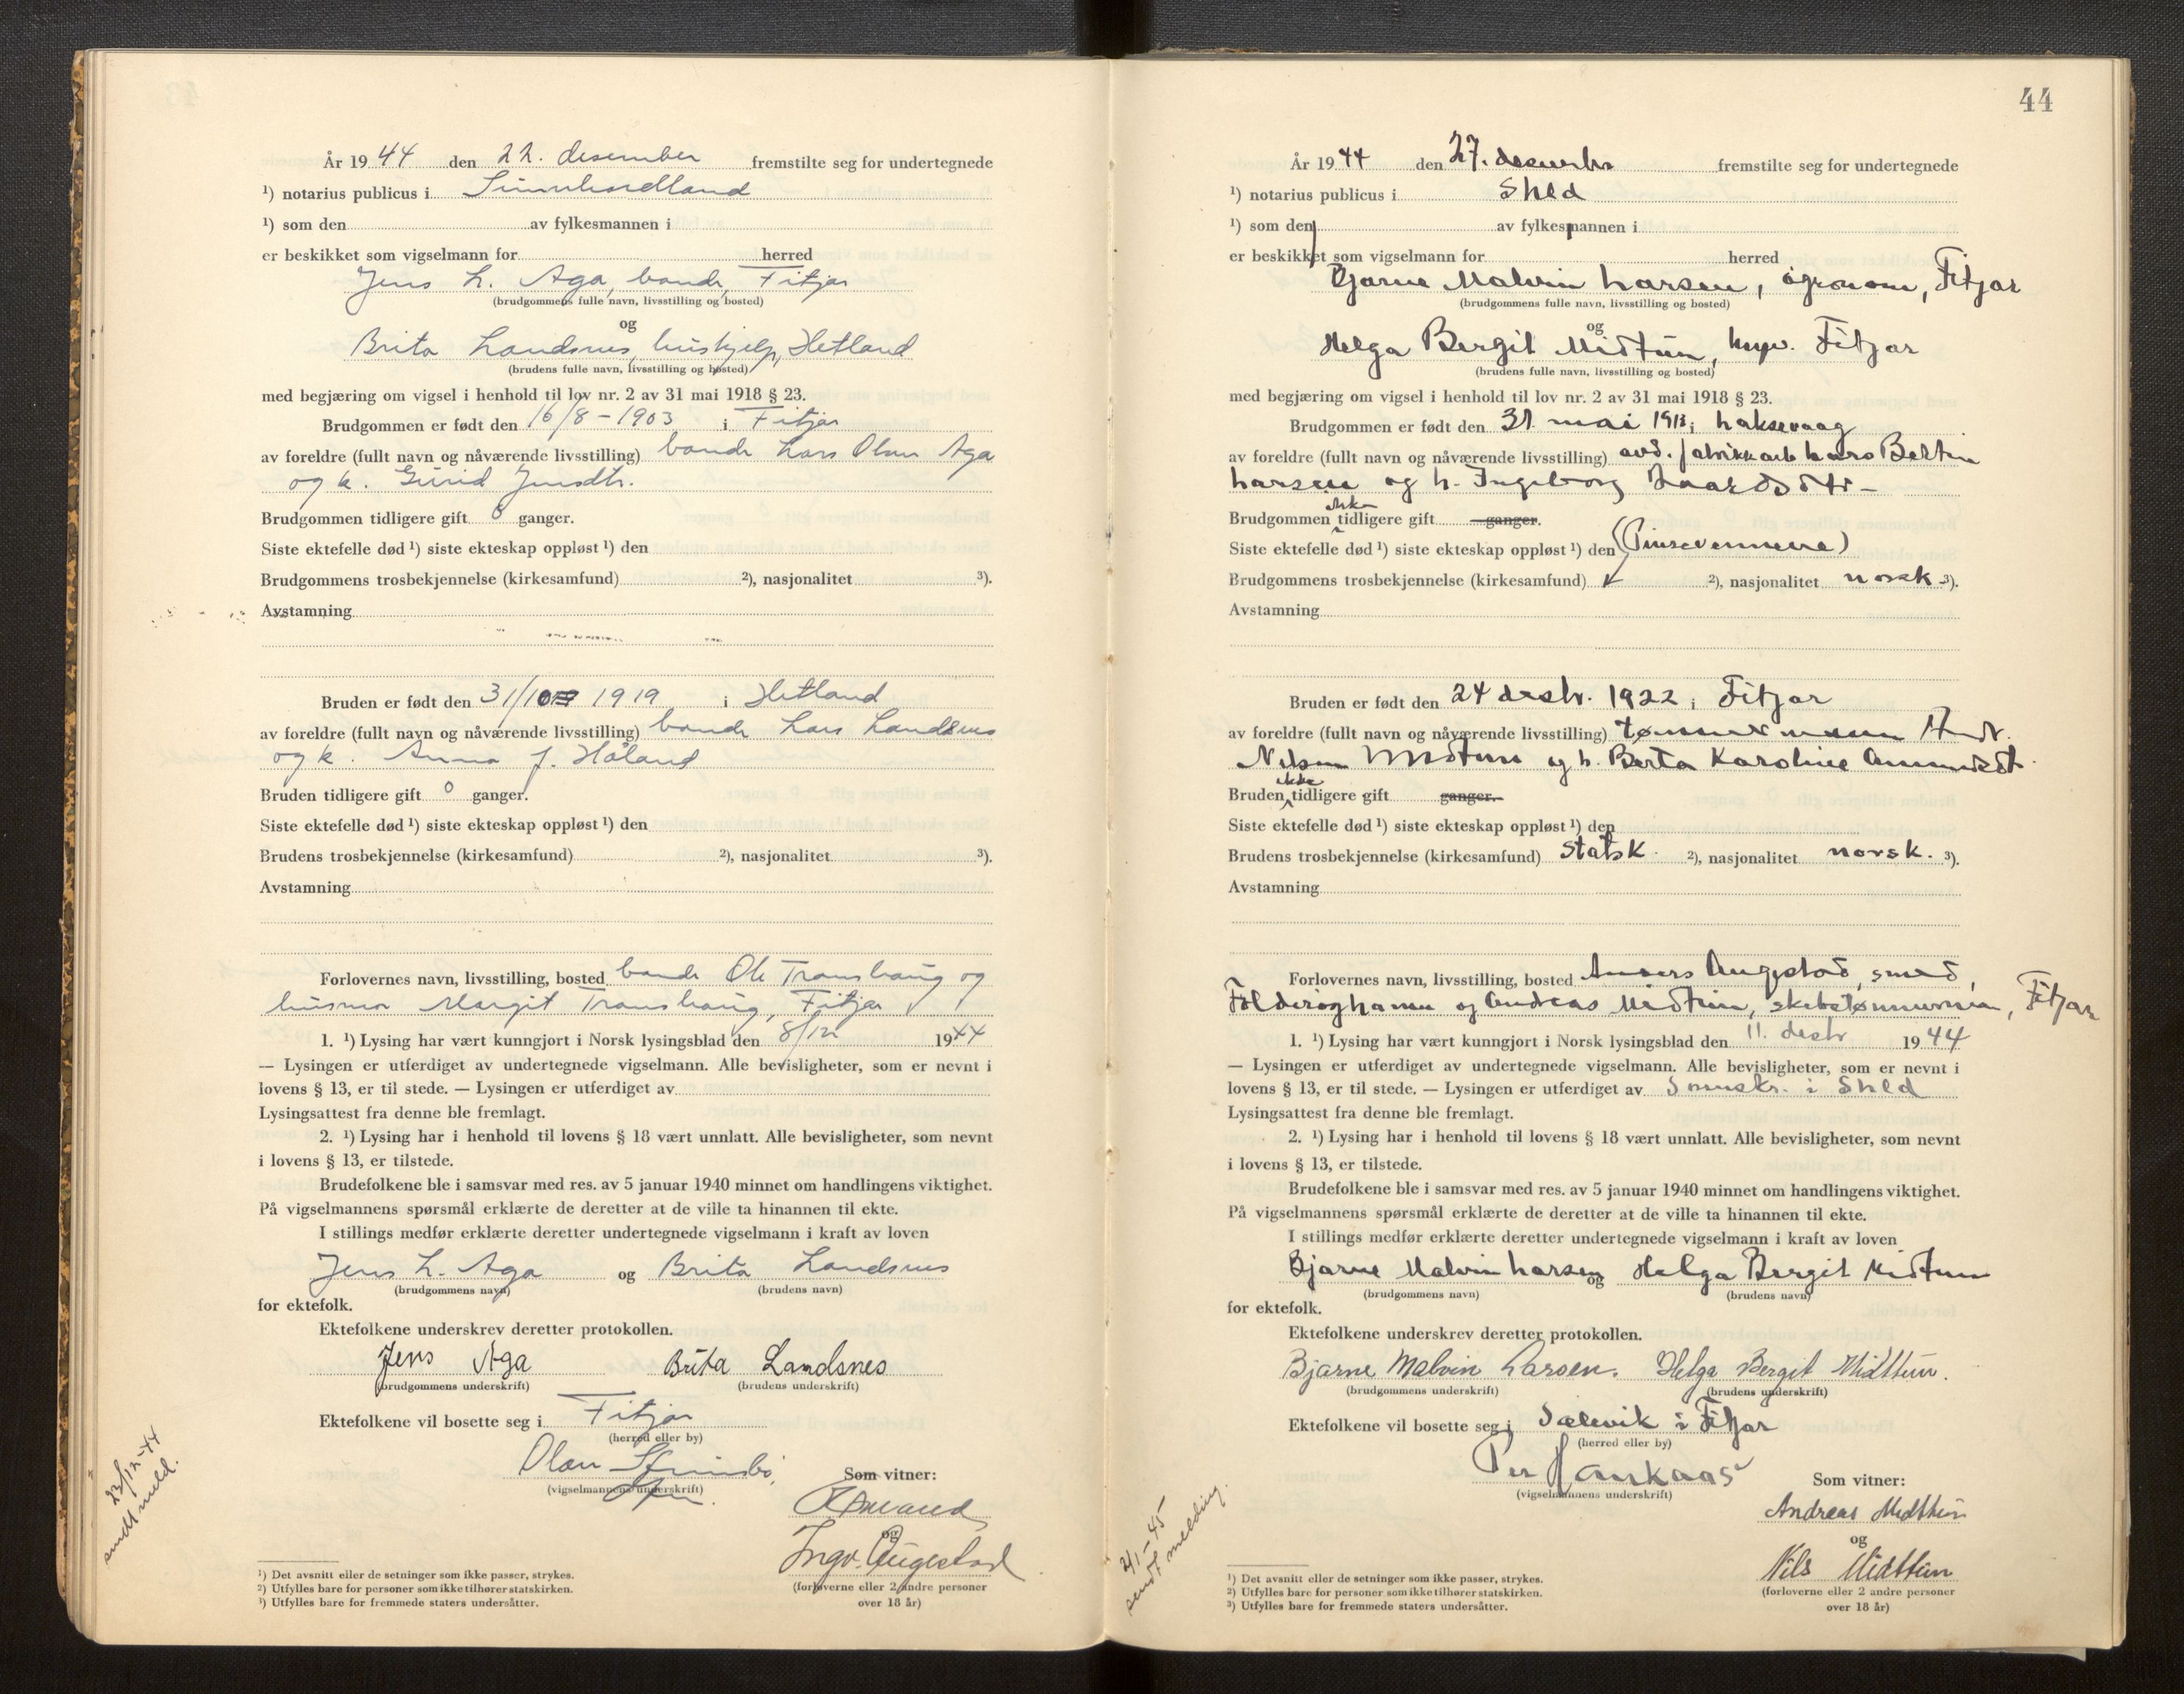 År 1944 den 22. desember fremstilte seg for undertegnede
¹) notarius publicus i Sunnhordland
¹) som den av fylkesmannen i
er beskikket som vigselmann for herred
Jens L. Aga, bonde, Fitjar
(brudgommens fulle navn, livsstilling og bosted)
og
Brita Landsnes, hushjelp, Hetland
(brudens fulle navn, livsstilling og bosted)
med begjæring om vigsel i henhold til lov nr. 2 av 31 mai 1918 § 23.
Brudgommen er født den 16/8-1903 i Fitjar
av foreldre (fullt navn og nåværende livsstilling) bonde Lars Olsen Aga
og k. Gurid Jensdtr.
Brudgommen tidligere gift 0 ganger.
Siste ektefelle død ¹) siste ekteskap oppløst ¹) den
Brudgommens trosbekjennelse (kirkesamfund) ²), nasjonalitet ³).
Avstamning
Bruden er født den 31/10 1919 i Hetland
av foreldre (fullt navn og nåværende livsstilling) bonde Lars Landsnes
og k. Anna J. Håland
Bruden tidligere gift 0 ganger.
Siste ektefelle død ¹) siste ekteskap oppløst ¹) den
Brudens trosbekjennelse (kirkesamfund) ²), nasjonalitet ³).
Avstamning
Forlovernes navn, livsstilling, bosted bonde Ole Transhaug og
husmor Margit Transhaug, Fitjar
1. ¹) Lysing har vært kunngjort i Norsk lysingsblad den 8/12 1944
— Lysingen er utferdiget av undertegnede vigselmann. Alle bevisligheter, som er nevnt i
lovens § 13, er til stede. — Lysingen er utferdiget av
Lysingsattest fra denne ble fremlagt.
2. ¹) Lysing har i henhold til lovens § 18 vært unnlatt. Alle bevisligheter, som nevnt
i lovens § 13, er tilstede.
Brudefolkene ble i samsvar med res. av 5 januar 1940 minnet om handlingens viktighet.
På vigselmannens spørsmål erklærte de deretter at de ville ta hinannen til ekte.
I stillings medfør erklærte deretter undertegnede vigselmann i kraft av loven
Jens L. Aga og Brita Landsnes
(brudgommens navn) (brudens navn)
for ektefolk.
Ektefolkene underskrev deretter protokollen.
Jens Aga Brita Landsnes
(brudgommens underskrift) (brudens underskrift)
Ektefolkene vil bosette seg i Fitjar
(herred eller by)
Olav
(vigselmannens underskrift)
Som vitner:
og
Ingv. Augestad
(forloverne eller 2 andre personer
over 18 år)
23/12-44
sendt meld.
¹) Det avsnitt eller de setninger som ikke passer, strykes.
²) Utfylles bare for personer som ikke tilhører statskirken.
³) Utfylles bare for fremmede staters undersåtter.
44
År 1944 den 27. desember fremstilte seg for undertegnede
¹) notarius publicus i Shld
¹) som den av fylkesmannen i
er beskikket som vigselmann for herred
Bjarne Malvin Larsen, agronom, Fitjar
(brudgommens fulle navn, livsstilling og bosted)
og
Helga Bergit Midtun, Fitjar
(brudens fulle navn, livsstilling og bosted)
med begjæring om vigsel i henhold til lov nr. 2 av 31 mai 1918 § 23.
Brudgommen er født den 31. mai 1913 i Laksevaag
av foreldre (fullt navn og nåværende livsstilling) avd. fabrikkarb Lars Bertin
Larsen og h. Ingeborg
Brudgommen ikke tidligere gift ganger.
Siste ektefelle død ¹) siste ekteskap oppløst ¹) den (Pinsevennene)
Brudgommens trosbekjennelse (kirkesamfund) ²), nasjonalitet norsk ³).
Avstamning
Bruden er født den 24 desbr. 1922 i Fitjar
av foreldre (fullt navn og nåværende livsstilling) tømmermann Andr.
Nelson Midtun og h. Berta Karoline Amundsdt.
Bruden ikke tidligere gift ganger.
Siste ektefelle død ¹) siste ekteskap oppløst ¹) den
Brudens trosbekjennelse (kirkesamfund) Statsk. ²), nasjonalitet norsk. ³).
Avstamning
Forlovernes navn, livsstilling, bosted Anders Augestad, smed,
Folderøyhamn og Andreas Midtun, skibstømmerman, Fitjar
1. ¹) Lysing har vært kunngjort i Norsk lysingsblad den 11. desbr 1944
— Lysingen er utferdiget av undertegnede vigselmann. Alle bevisligheter, som er nevnt i
lovens § 13, er til stede. — Lysingen er utferdiget av Sorenskr. i Shld
Lysingsattest fra denne ble fremlagt.
2. ¹) Lysing har i henhold til lovens § 18 vært unnlatt. Alle bevisligheter, som nevnt
i lovens § 13, er tilstede.
Brudefolkene ble i samsvar med res. av 5 januar 1940 minnet om handlingens viktighet.
På vigselmannens spørsmål erklærte de deretter at de ville ta hinannen til ekte.
I stillings medfør erklærte deretter undertegnede vigselmann i kraft av loven
Bjarne Malvin Larsen og Helga Bergit Midtun
(brudgommens navn) (brudens navn)
for ektefolk.
Ektefolkene underskrev deretter protokollen.
Bjarne Malvin Larsen. Helga Bergit Midttun.
(brudgommens underskrift) (brudens underskrift)
Ektefolkene vil bosette seg i Sælevik i Fitjar
(herred eller by)
Per Hankaas
(vigselmannens underskrift)
Som vitner:
Andreas Midttun
og
Nils Midttun
(forloverne eller 2 andre personer
over 18 år)
2/1-45
sendt melding.
¹) Det avsnitt eller de setninger som ikke passer, strykes.
²) Utfylles bare for personer som ikke tilhører statskirken.
³) Utfylles bare for fremmede staters undersåtter.